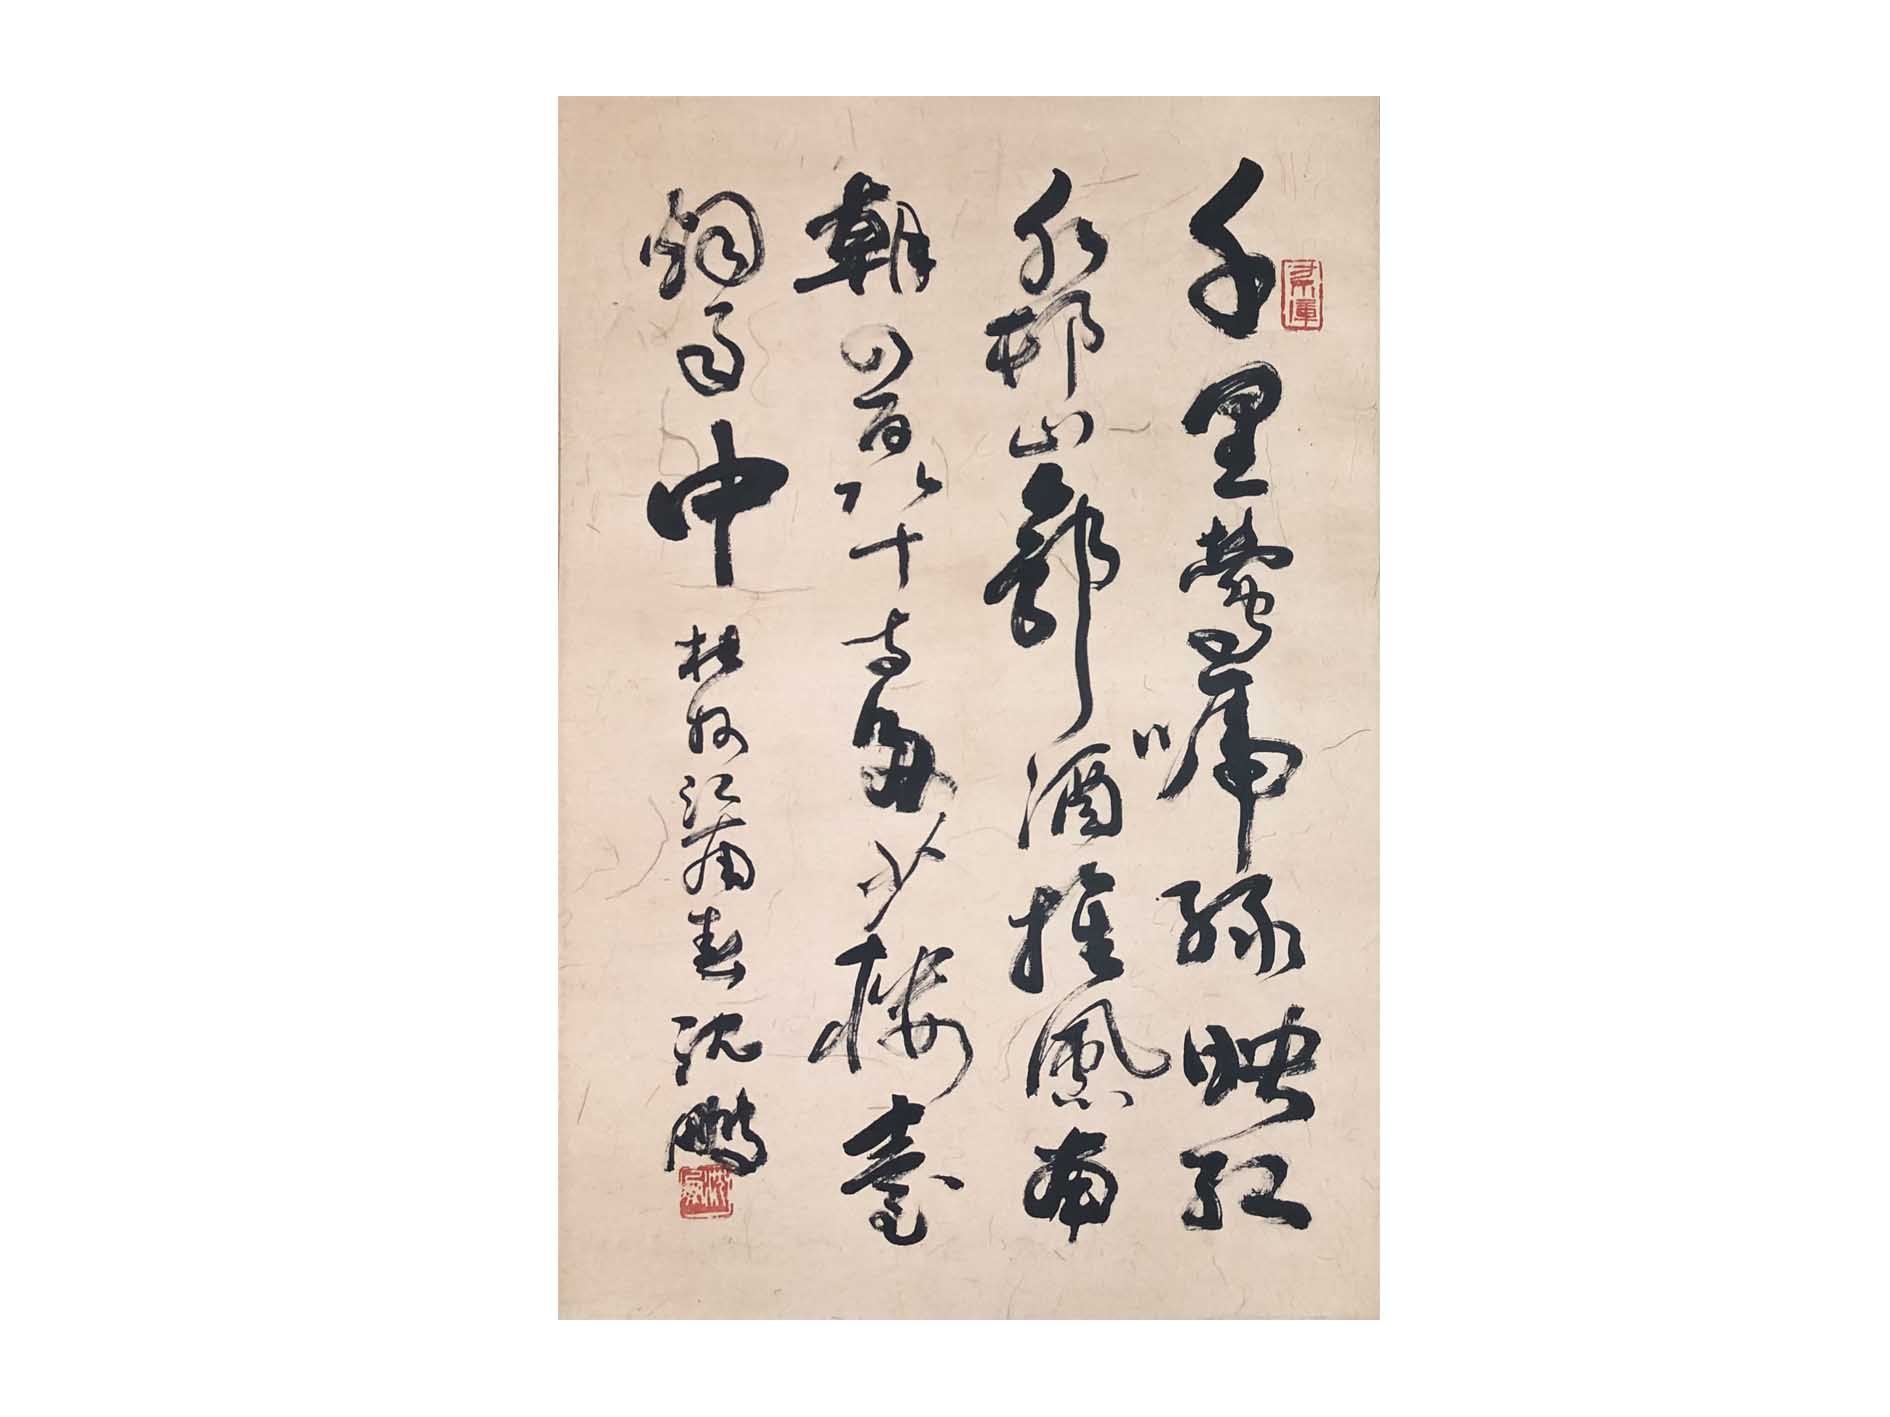 千里鶯啼綠映紅
水邨山郭酒旗風南
朝四百八十寺多少樓臺
烟雨中 杜牧江南春 沈鵬